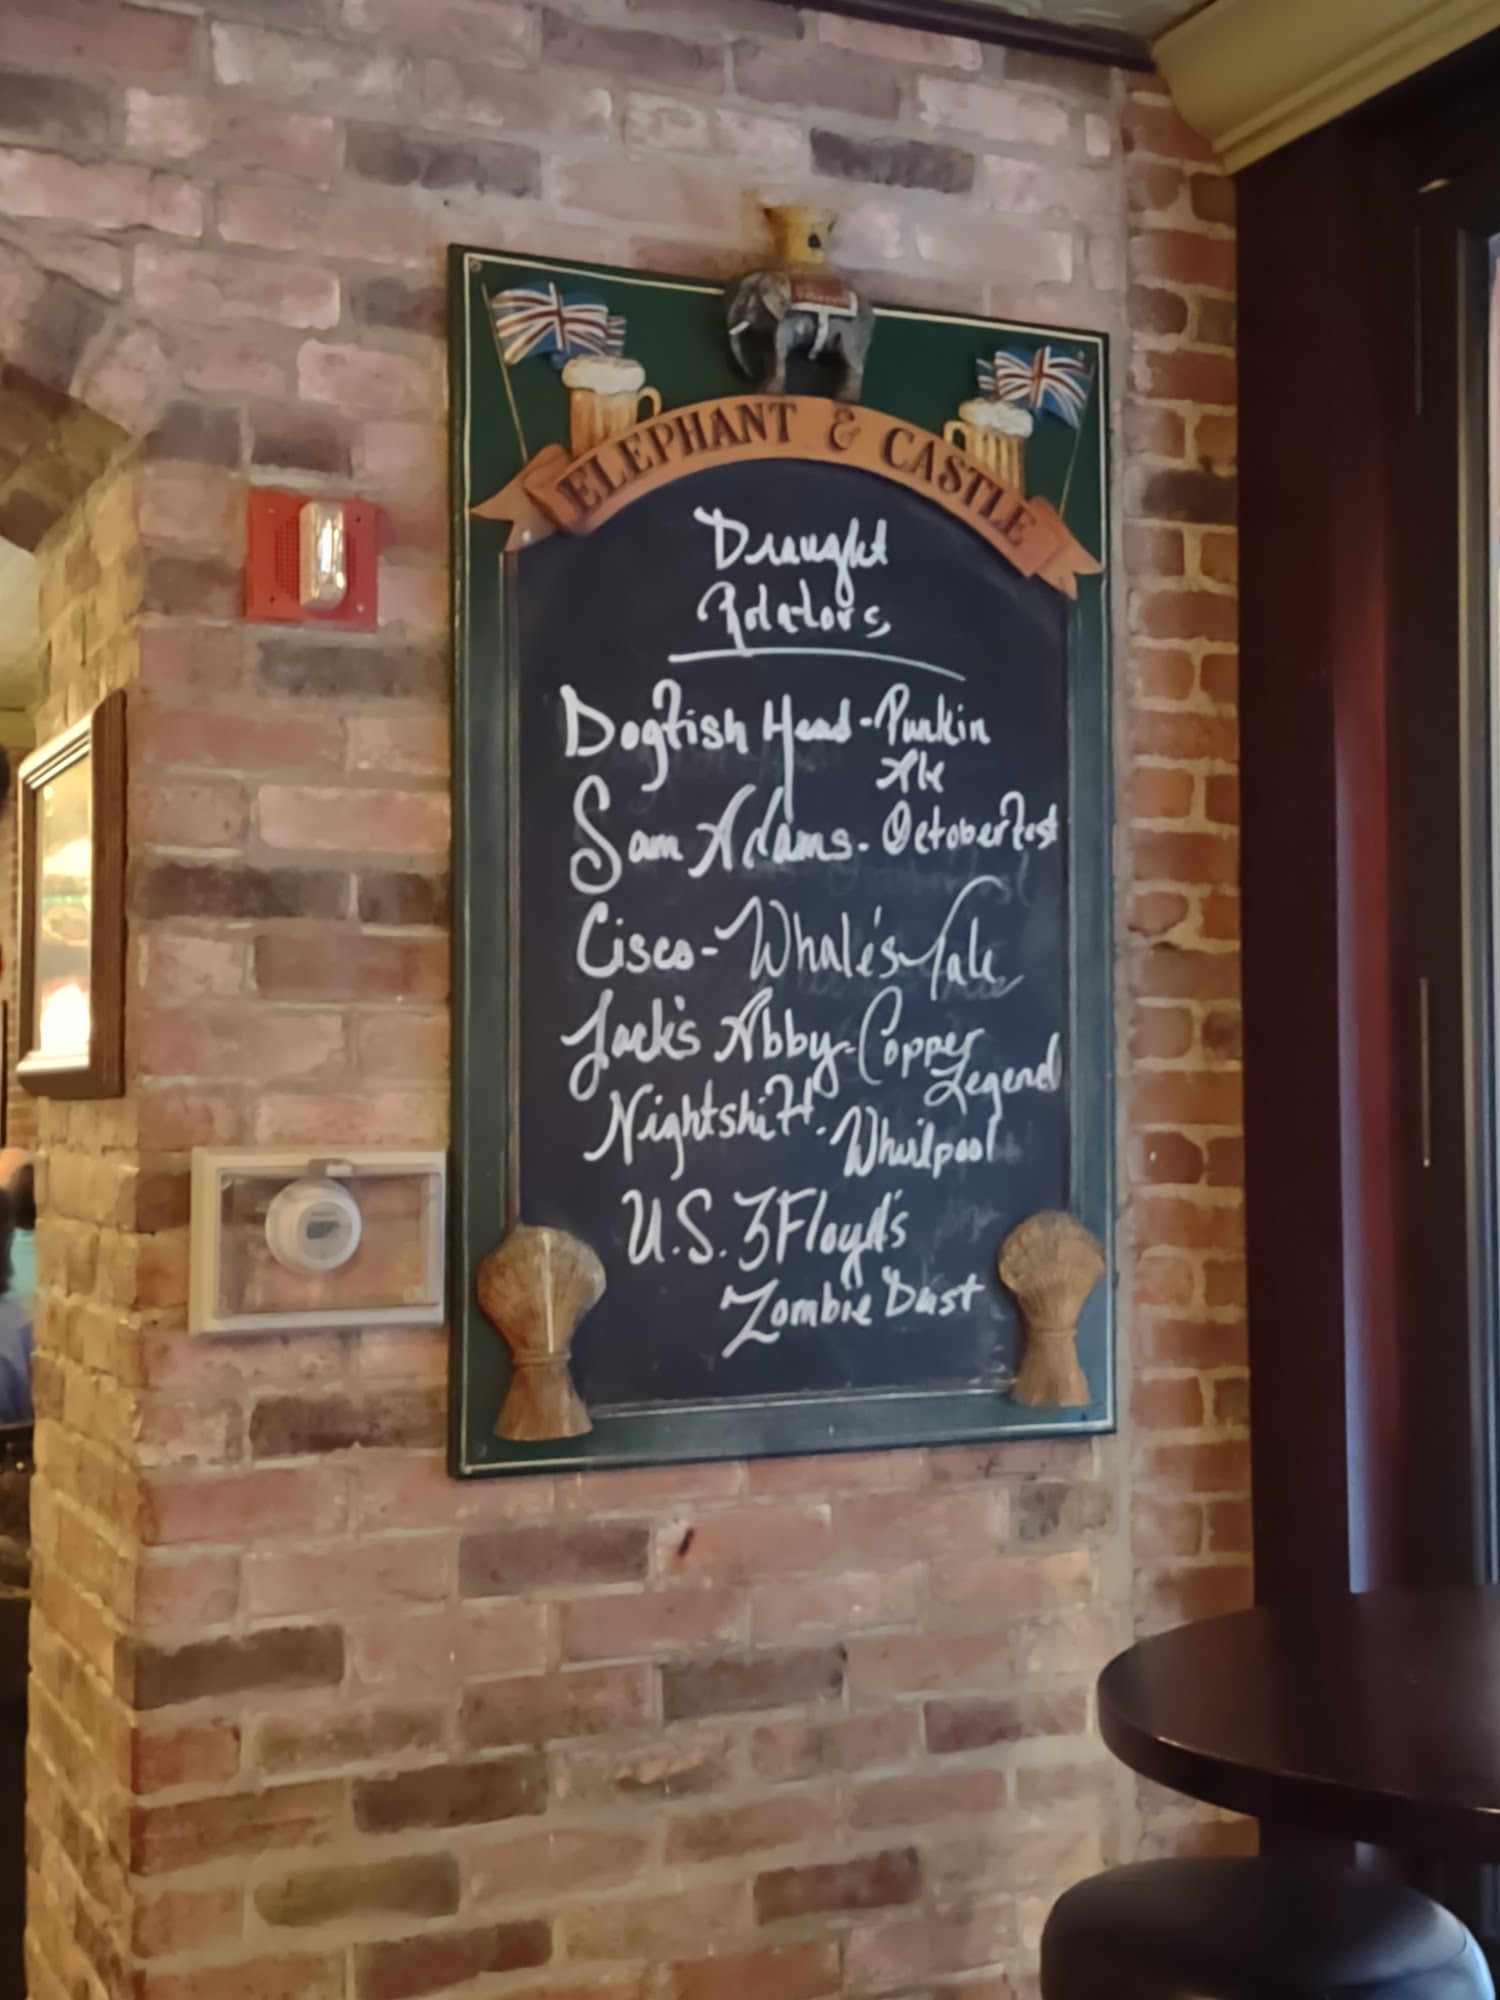 ELEPHANT & CASTLE
Draught
Rotators
Dogfish Head - Punkin
Ale
Sam Adams - Octoberfest
Cisco - Whale's Tale
Jack's Abby - Copper
Legend
Nightshift - Whirlpool
U.S. 3 Floyd's
Zombie Dust